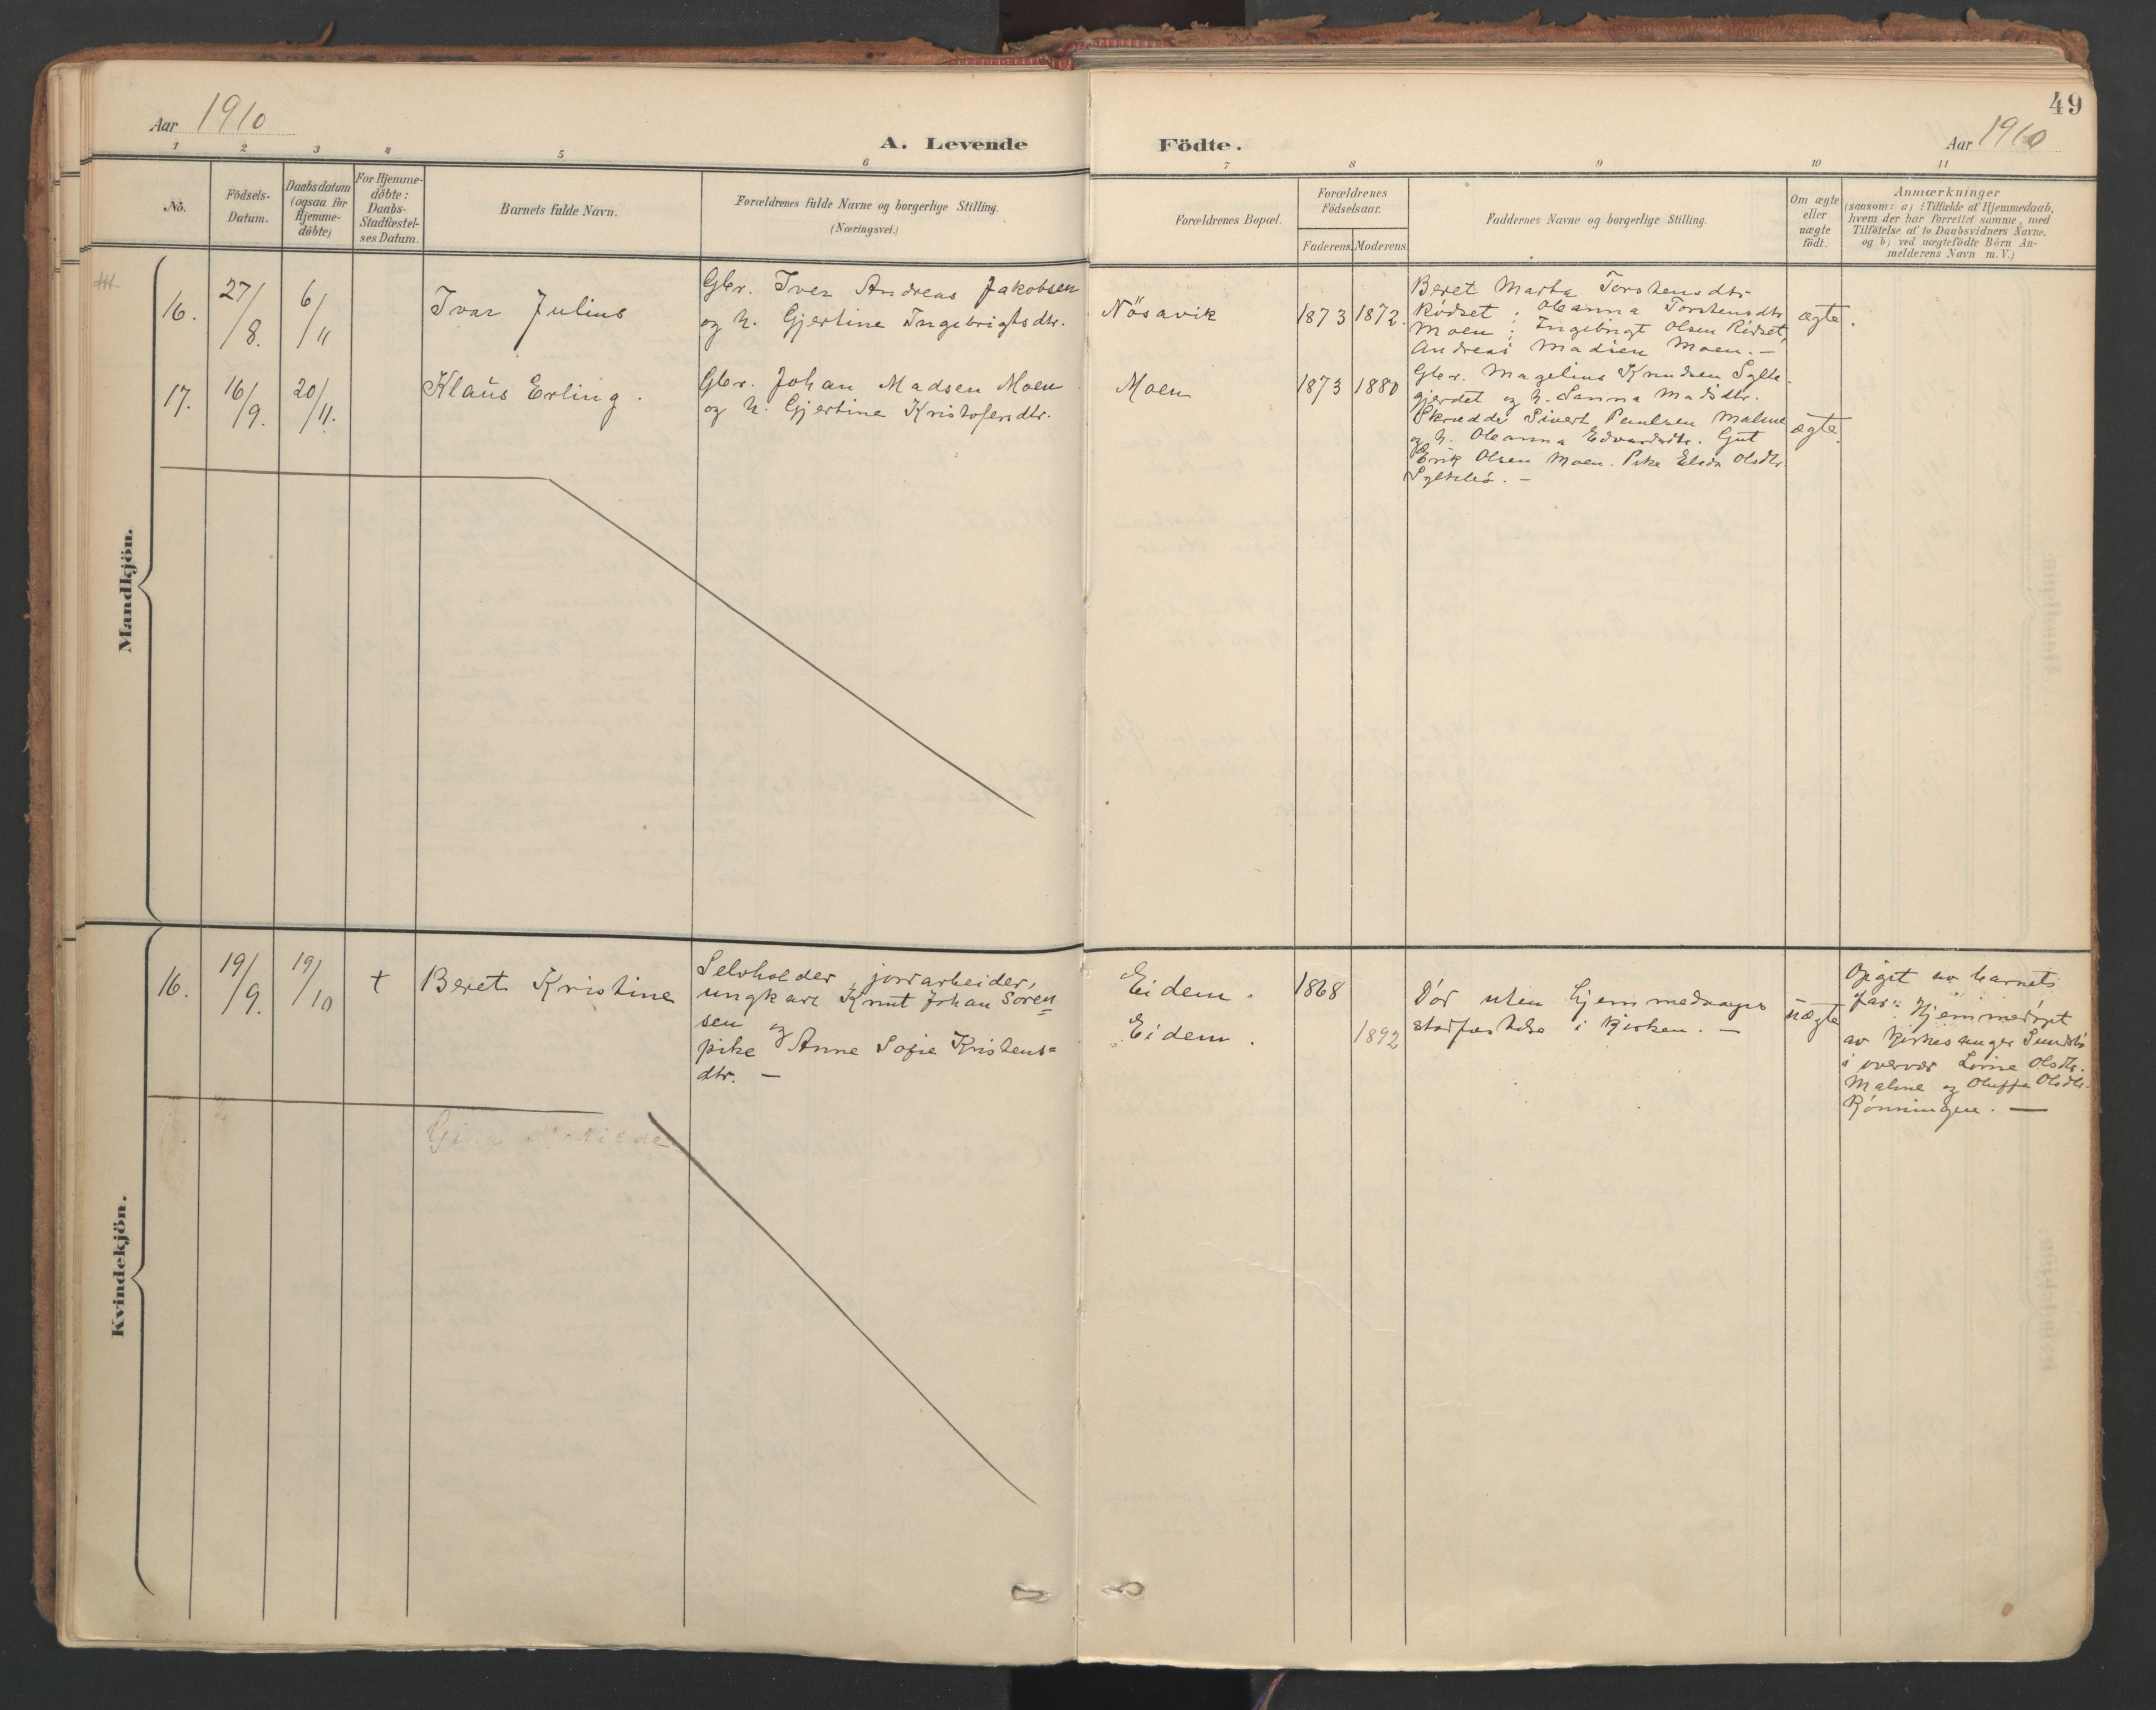 49
Aar 1910
A. Levende Födte.
Aar 1910
1 2 3 4 5 6 7 8 9 10 11
No.
Födsels-
Datum.
Daabsdatum
(ogsaa for
Hjemme-
döbte)
For Hjemme-
döbte:
Daabs-
Stadfæstel-
ses Datum.
Barnets fulde Navn.
Forældrenes fulde Navne og borgerlige Stilling.
(Næringsvei.)
Forældrenes Bopæl.
Forældrenes
Födselsaar.
Faderens. Moderens.
Faddernes Navne og borgerlige Stilling.
Om ægte
eller
uægte
födt.
Anmærkninger
(saasom: a) i Tilfælde af Hjemmedaab,
hvem der har forrettet samme, med
Tilföielse af to Daabsvidners Navne,
og b) ved uægtefödte Börn An-
melderens Navn m. V.)
Mandkjön.
16.
27/8.
6/11
Ivar Julius
Gbr. Iver Andreas Jakobsen
og h. Gjertine Ingebrigtsdtr.
Nösavik
1873 1872.
Beret Marta Torstensdtr
Rödset; Oleanna Torstensdtr
Moen; Ingebrigt Olsen Rödset,
Andreas Madsen Moen. —
ægte.
17.
16/9.
20/11.
Klaus Erling.
Gbr. Johan Madsen Moen
og h. Gjertine Kristofersdtr.
Moen
1873 1880
Gbr. Magelius Knudsen Sylte-
gjerdet og h. Sanna Madsdtr.
Skrædder Sivert Paulsen Malme
og h. Oleanna Edvardsdtr. Gut
Erik Olsen Moen. Pike Elida Olsdtr
ægte.
Kvindekjön.
16.
19/9.
19/10
+
Beret Kristine
Selvholder, jordarbeider,
ungkarl Knut Johan Soren=
sen og
pike Anne Sofie Kristens=
dtr. —
Eidem.
Eidem.
1868
1892
Dör uten hjemmedaaps
stadfæstelse i kirken. —
uægte
Opgit av barnets
far. Hjemmedöpt
av kirkesanger
i overvær Olsdtr.
Malme og Oluffa Olsdtr.
Rönningen. —